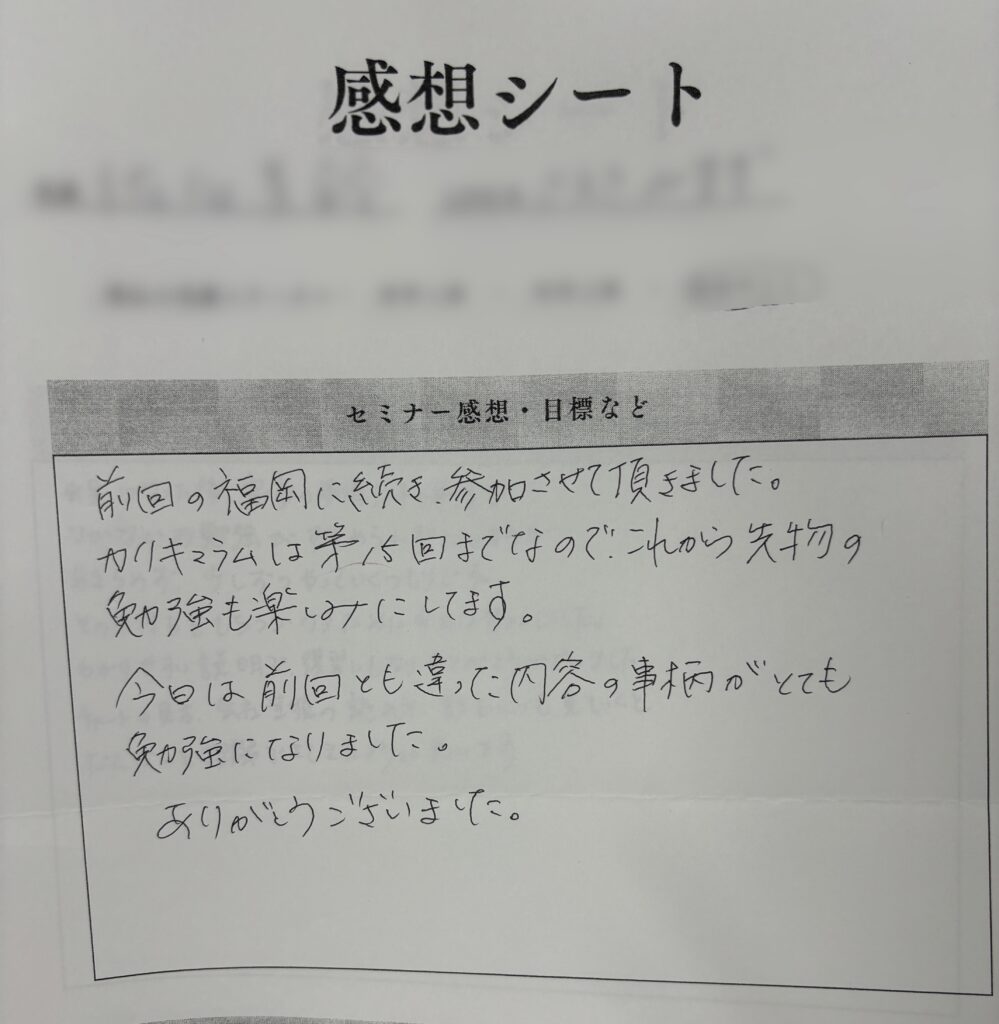 感想シート
セミナー感想・目標など
前回の福岡に続き、参加させて頂きました。
カリキュラムは第15回までなので、これから先物の
勉強も楽しみにしてます。
今日は前回とも違った内容の事柄がとても
勉強になりました。
ありがとうございました。